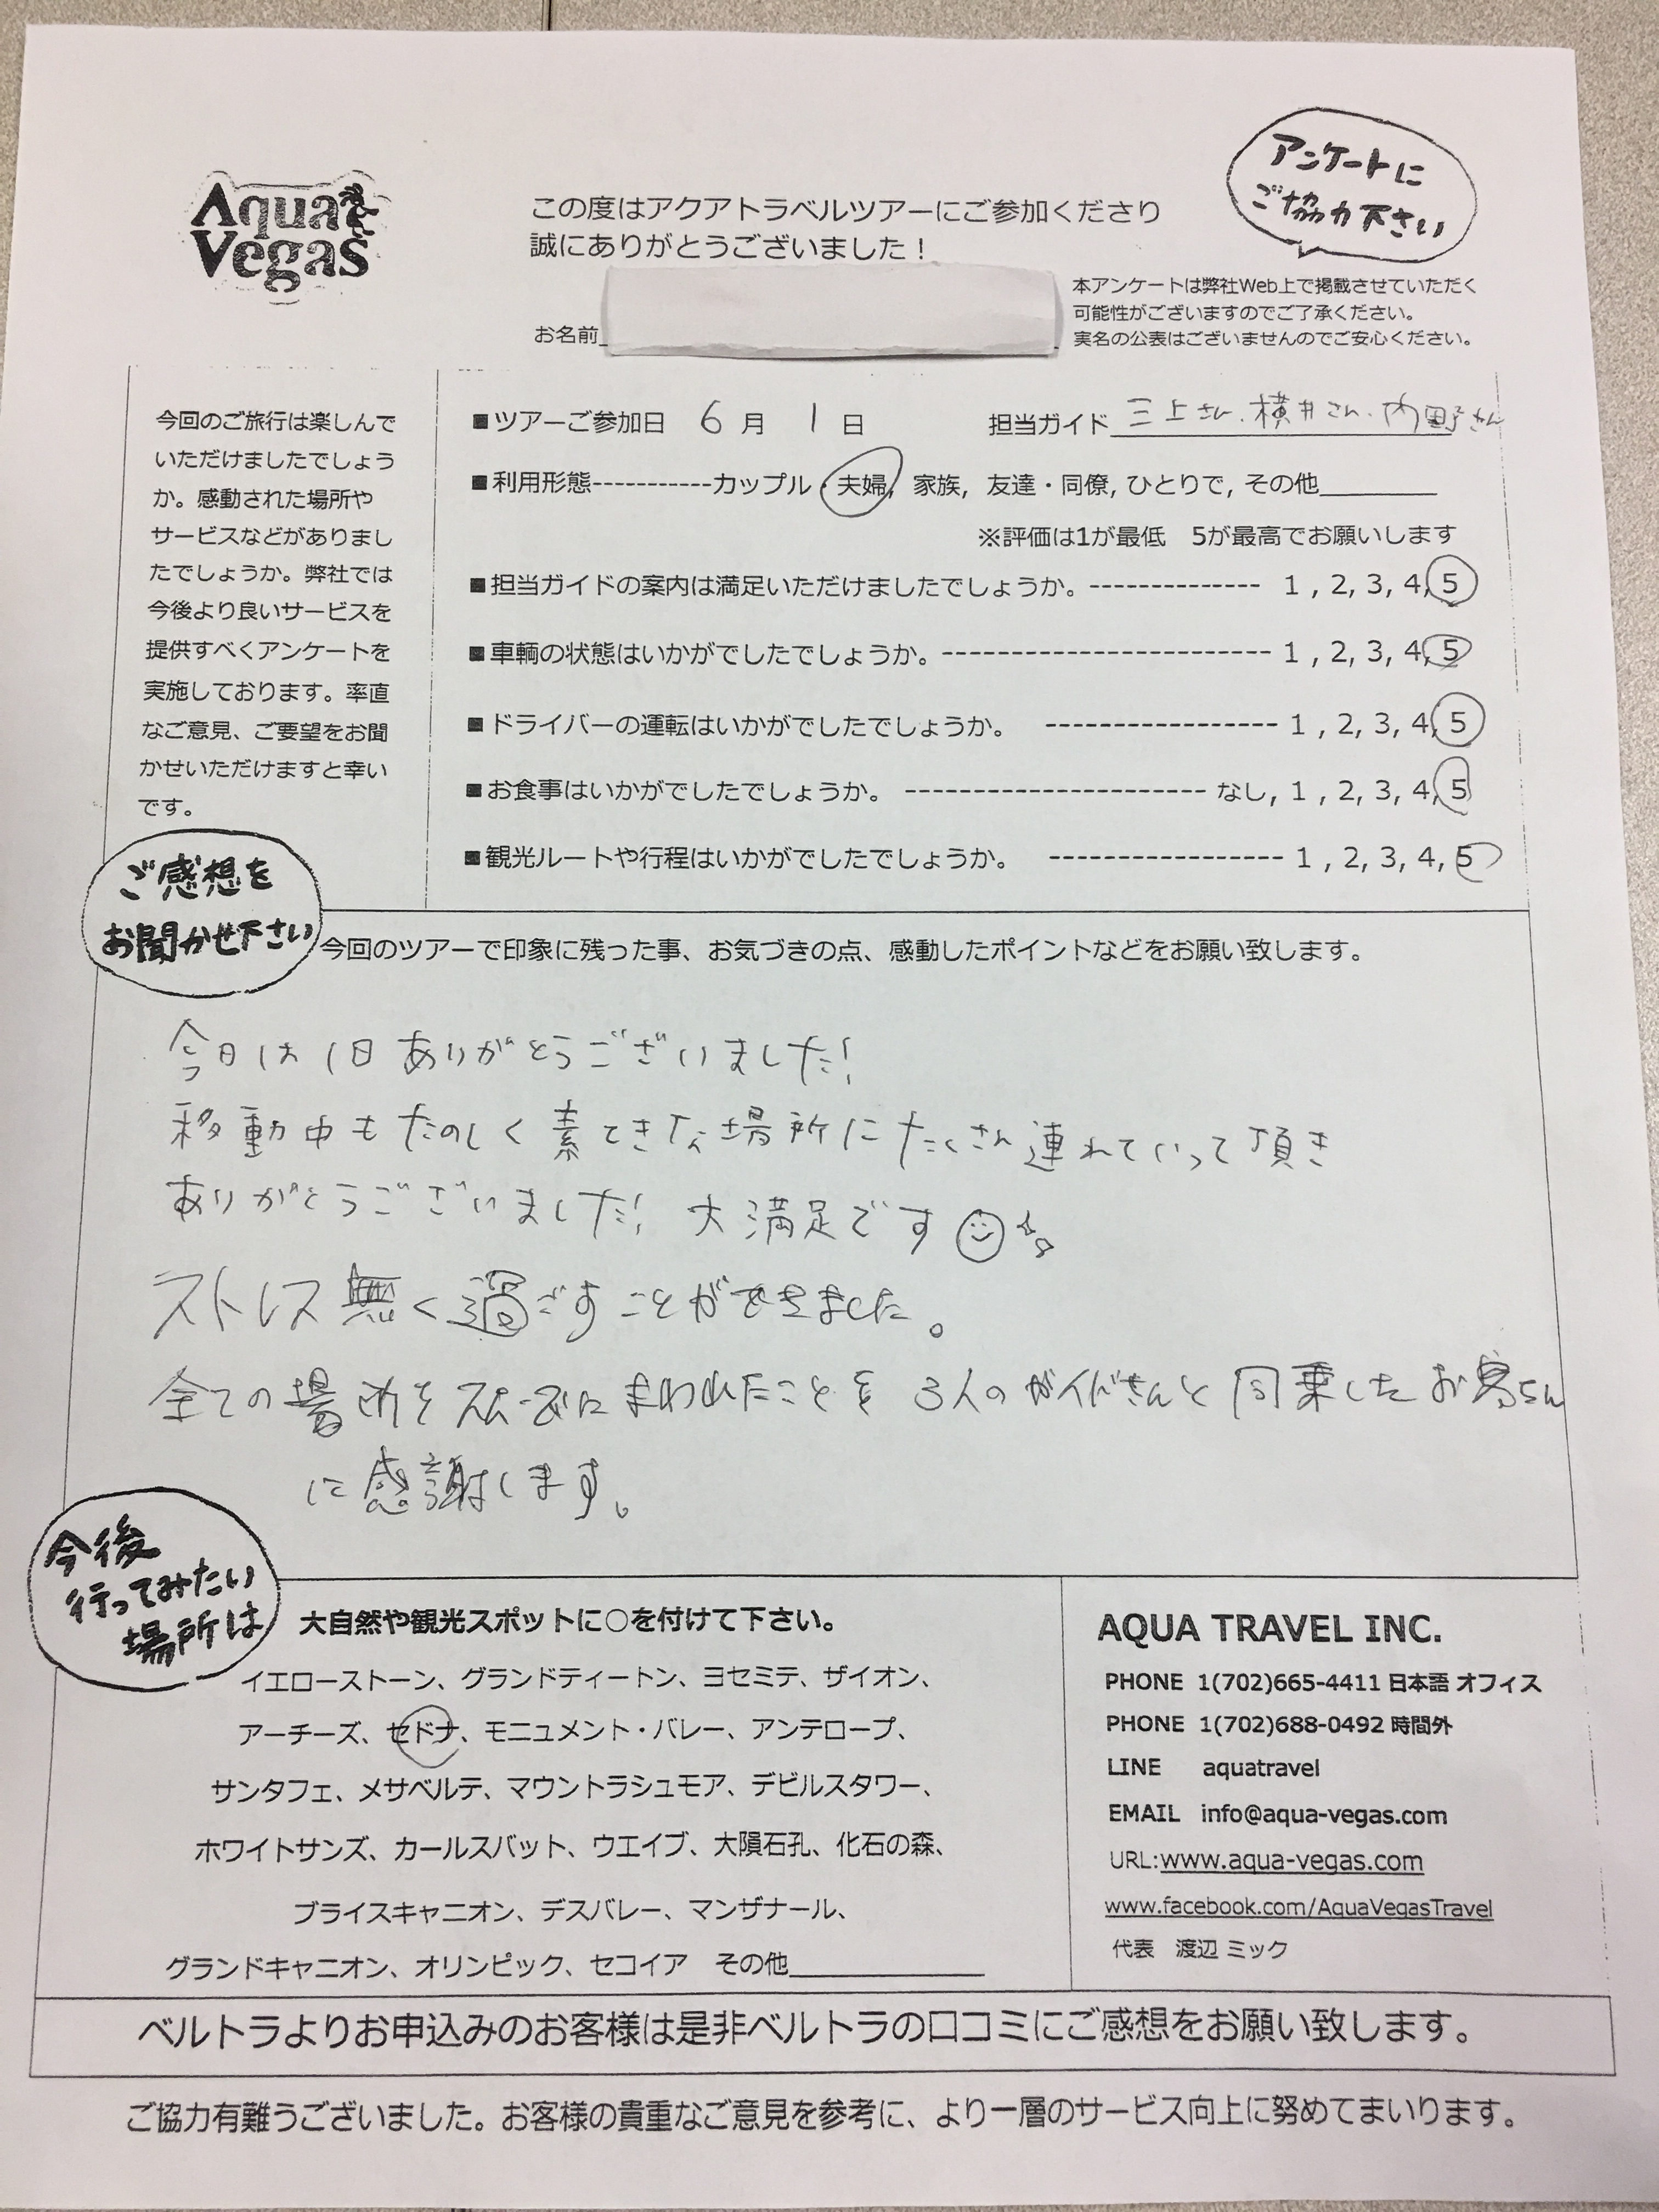 Aqua
Vegas
アンケートに
ご協力下さい
この度はアクアトラベルツアーにご参加くださり
誠にありがとうございました！
お名前
本アンケートは弊社Web上で掲載させていただく
可能性がございますのでご了承ください。
実名の公表はございませんのでご安心ください。
今回のご旅行は楽しんで
いただけましたでしょう
か。感動された場所や
サービスなどがありまし
たでしょうか。弊社では
今後より良いサービスを
提供すべくアンケートを
実施しております。率直
なご意見、ご要望をお聞
かせいただけますと幸い
です。
■ツアーご参加日 6月 1日 担当ガイド 三上さん、横井さん、内野さん
■利用形態-----------カップル・夫婦, 家族, 友達・同僚, ひとりで, その他
※評価は1が最低 5が最高でお願いします
■担当ガイドの案内は満足いただけましたでしょうか。------------- 1 , 2, 3, 4, 5
■車輌の状態はいかがでしたでしょうか。------------------------ 1 , 2, 3, 4, 5
■ドライバーの運転はいかがでしたでしょうか。 ----------------- 1 , 2, 3, 4, 5
■お食事はいかがでしたでしょうか。 ---------------------- なし, 1 , 2, 3, 4, 5
■観光ルートや行程はいかがでしたでしょうか。 ----------------- 1 , 2, 3, 4, 5
ご感想を
お聞かせ下さい
今回のツアーで印象に残った事、お気づきの点、感動したポイントなどをお願い致します。
今日は1日ありがとうございました!
移動中もたのしく素てきな場所にたくさん連れていって頂き
ありがとうございました! 大満足です
ストレス無く過ごすことができました。
全ての場所をスムーズにまわれたことを 3人のガイドさんと同乗したお客さん
に感謝します。
今後
行ってみたい
場所は
大自然や観光スポットに○を付けて下さい。
イエローストーン、グランドティートン、ヨセミテ、ザイオン、
アーチーズ、セドナ、モニュメント・バレー、アンテロープ、
サンタフェ、メサベルテ、マウントラシュモア、デビルスタワー、
ホワイトサンズ、カールスバット、ウエイブ、大隕石孔、化石の森、
ブライスキャニオン、デスバレー、マンザナール、
グランドキャニオン、オリンピック、セコイア その他
AQUA TRAVEL INC.
PHONE 1(702)665-4411 日本語 オフィス
PHONE 1(702)688-0492 時間外
LINE aquatravel
EMAIL info@aqua-vegas.com
URL:www.aqua-vegas.com
www.facebook.com/AquaVegasTravel
代表 渡辺 ミック
ベルトラよりお申込みのお客様は是非ベルトラの口コミにご感想をお願い致します。
ご協力有難うございました。お客様の貴重なご意見を参考に、より一層のサービス向上に努めてまいります。